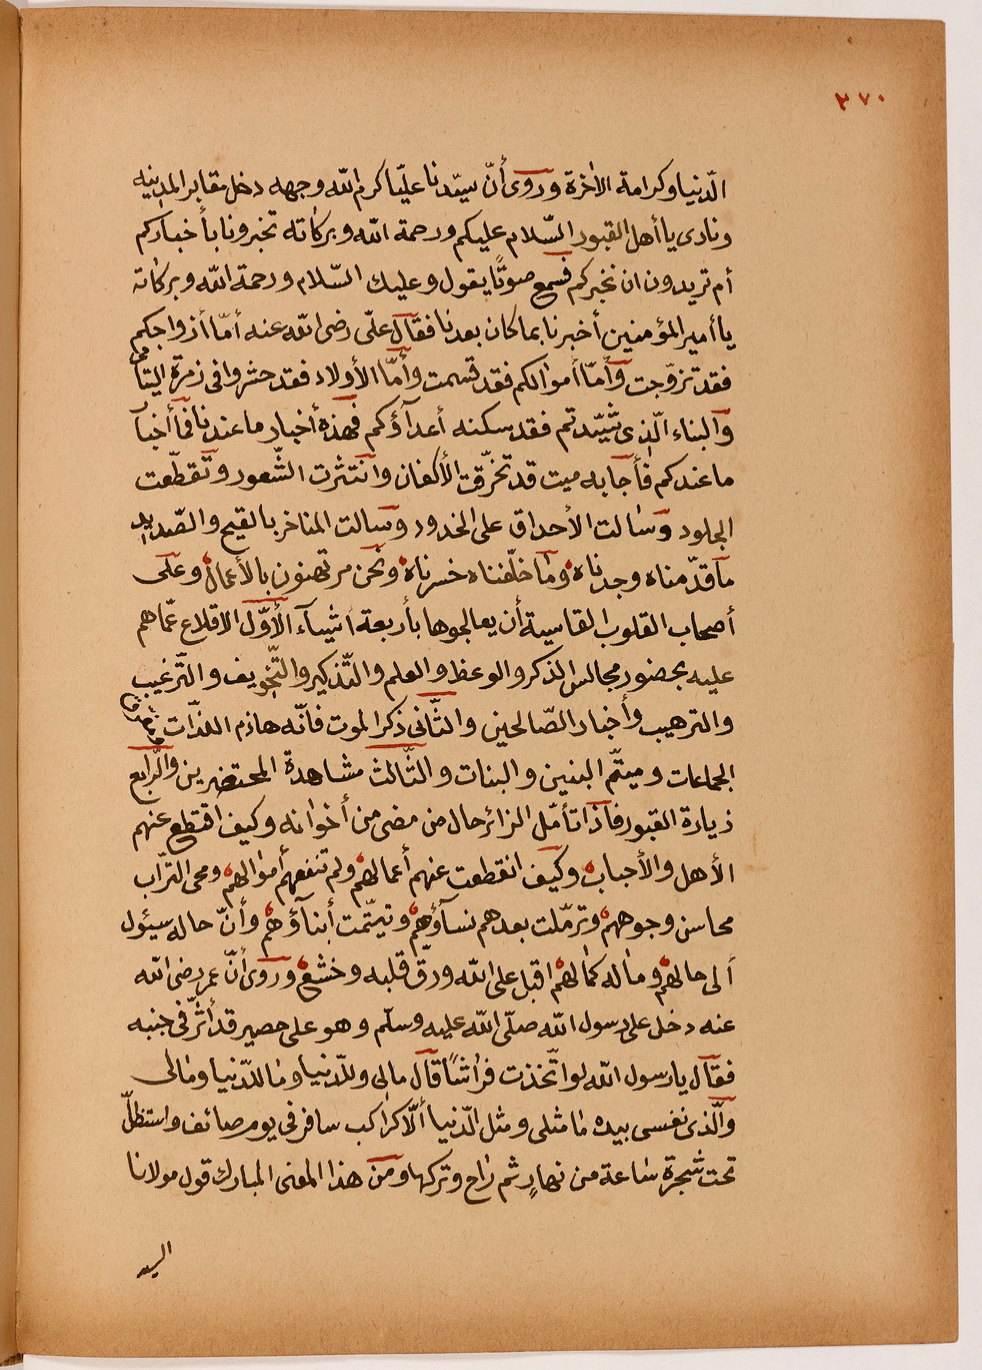 ٣٧٠
الدّنيا وكرامة الآخرة وروى أنّ سيّدنا عليّا كرم الله وجهه دخل مقابر المدينه
ونادى يا أهل القبور السّلام عليكم ورحمة الله وبركاته تخبرونا بأخباركم
أم تريدون ان نخبركم فسمع صوتًا يقول وعليك السّلام ورحمة الله وبركاته
يا أمير المؤمنين أخبرنا بما كان بعدنا فقال علّى رضى الله عنه أمّا أزواجكم
فقد تزوّجت وأمّا أموالكم فقد قسمت وأمّا الأولاد فقد حشروا فى زمرة اليتامى
والبناء الّذى شيّدتم فقد سكنه أعدآؤكم فهذة أخبار ما عندنا فما أخبآ
ما عندكم فأجابه ميت قد تخرّقت الأكفان وانتثرت الشّعور وتقطّعت
الجلود وسالت الأحداق على الخدود وسالت المناخر بالقيح والصّديد
ما قدّمناه وجدناه وما خلّفناه خسرناه ونحن مرتهنون بالأعمال وعلى
أصحاب القلوب القاسية أن يعالجوها بأربعة اشيآء الأوّل الاقلاع عمّاهم
عليه بحضور مجالس الذكر والوعظ والعلم والتّذكير والتّخويف والتّرغيب
والترهيب وأخبار الصّالحين والثّانى ذكر الموت فانّه هاذم اللذّات ومفرق
الجماعات وميتّم البنين والبنات والثّالث مشاهدة المحتضرين والرّابع
زيارة القبور فاذا تأمّل الزائر حال من مضى من أخوانه وكيف اقتطع عنهم
الأهل والأحباب وكيف انقطعت عنهم أعمالهم ولم تنفعهم أموالهم ومحى التّراب
محاسن وجوههم وترمّلت بعدهم نسآؤهم وتيتّمت أبنآؤهم وأنّ حاله سيئول
ألى حالهم وماله كمالهم اقبل على الله ورقّ قلبه وخشع وروى أنّ عمر رضى الله
عنه دخل على رسول الله صلّى الله عليه وسلّم وهو على حصير قد أثّر فى جنبه
فقال يا رسول الله لو اتّخذت فراشًا قال مالى وللدّنيا وما للدّنيا ومالى
والّذى نفسى بيده ما مثلى ومثل الدّنيا ألّا كراكب سافر فى يوم صائف واستظلّ
تحت شجرة ساعة من نهارٍ ثم راح وتركها ومن هذا المعنى المبارك قول مولانا
السيد